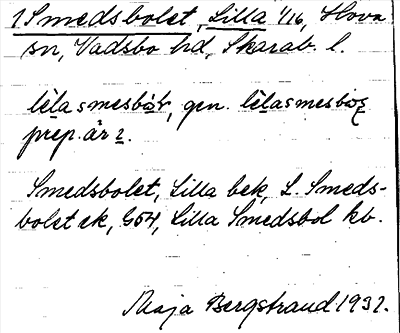 1 Smedsbolet, Lilla 1/16, Hova
sn, Vadsbo hd, Skarab. l.
lilasmesbår, gen.
prep. är 2.
Smedsbolet, Lilla bek, L. Smeds-
bolet ek, G54, Lilla Smedsbol kb.
Maja Bergstrand 1932.